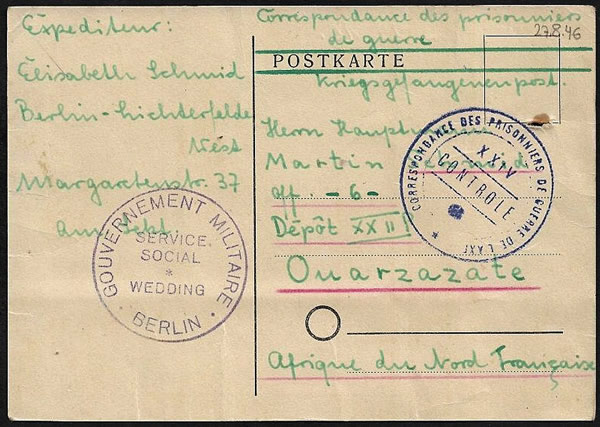 Expediteur:
Elisabeth Schmid
Berlin-Lichterfelde
West
Margaretenstr. 37
GOUVERNEMENT MILITAIRE
SERVICE
SOCIAL
*
WEDDING
· BERLIN ·
Correspondance des prisonniers
de guerre
27.8.46
POSTKARTE
Kriegsgefangenenpost.
Herrn
Martin
Off. -6-
Dépôt XXII
Ouarzazate
Afrique du Nord Française
CORRESPONDANCE DES PRISONNIERS DE GUERRE DE L'AXE
XXIV
CONTROLE
*